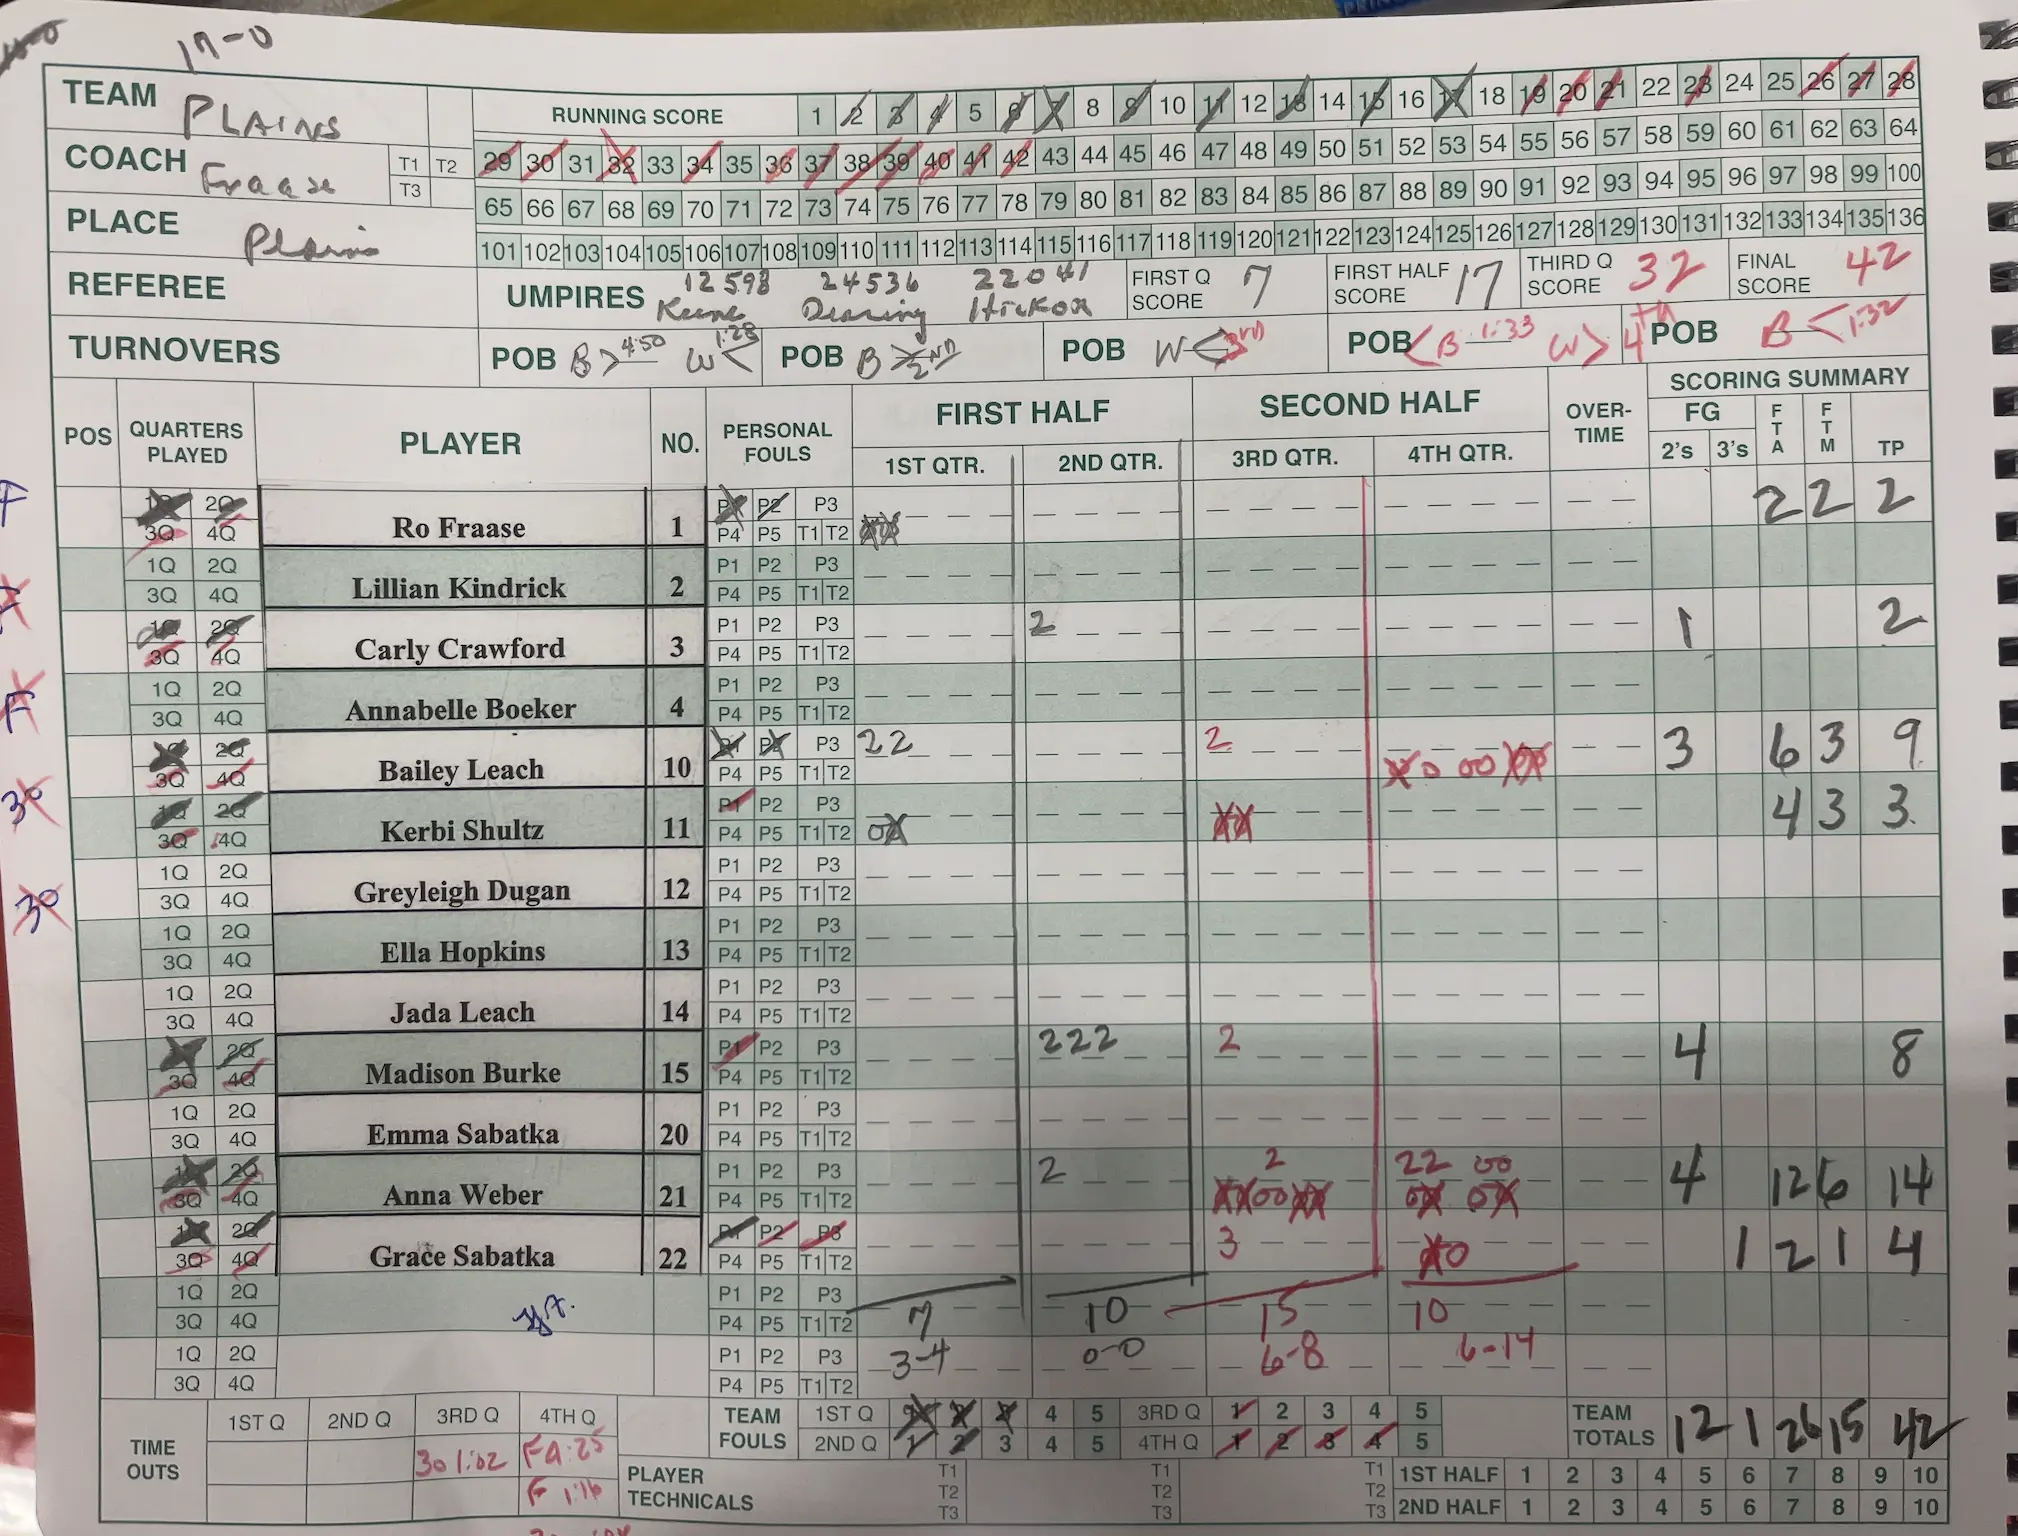 17-0
TEAM PLAINS
RUNNING SCORE 1 2 3 4 5 6 7 8 9 10 11 12 13 14 15 16 17 18 19 20 21 22 23 24 25 26 27 28
COACH Fraase T1 T2 T3
29 30 31 32 33 34 35 36 37 38 39 40 41 42 43 44 45 46 47 48 49 50 51 52 53 54 55 56 57 58 59 60 61 62 63 64
65 66 67 68 69 70 71 72 73 74 75 76 77 78 79 80 81 82 83 84 85 86 87 88 89 90 91 92 93 94 95 96 97 98 99 100
PLACE Plains
101 102 103 104 105 106 107 108 109 110 111 112 113 114 115 116 117 118 119 120 121 122 123 124 125 126 127 128 129 130 131 132 133 134 135 136
REFEREE
UMPIRES 12598 24536 22041
Keene Dearing Hickox
FIRST Q SCORE 7
FIRST HALF SCORE 17
THIRD Q SCORE 32
FINAL SCORE 42
TURNOVERS
POB B > 4:50 W < 1:28
POB B > 2ND
POB W < 3RD
POB < B 1:33 W > 4th
POB B < 1:32
POS QUARTERS PLAYED PLAYER NO. PERSONAL FOULS FIRST HALF SECOND HALF OVER-TIME SCORING SUMMARY
1ST QTR. 2ND QTR. 3RD QTR. 4TH QTR. FG 2's 3's FTA FTM TP
1Q 2Q P1 P2 P3
3Q 4Q Ro Fraase 1 P4 P5 T1 T2 2 2 2
1Q 2Q P1 P2 P3
3Q 4Q Lillian Kindrick 2 P4 P5 T1 T2
1Q 2Q P1 P2 P3 2
3Q 4Q Carly Crawford 3 P4 P5 T1 T2 1 2
1Q 2Q P1 P2 P3
3Q 4Q Annabelle Boeker 4 P4 P5 T1 T2
1Q 2Q P1 P2 P3 22 2
3Q 4Q Bailey Leach 10 P4 P5 T1 T2 3 6 3 9
1Q 2Q P1 P2 P3
3Q 4Q Kerbi Shultz 11 P4 P5 T1 T2 4 3 3
1Q 2Q P1 P2 P3
3Q 4Q Greyleigh Dugan 12 P4 P5 T1 T2
1Q 2Q P1 P2 P3
3Q 4Q Ella Hopkins 13 P4 P5 T1 T2
1Q 2Q P1 P2 P3
3Q 4Q Jada Leach 14 P4 P5 T1 T2
1Q 2Q P1 P2 P3 222 2
3Q 4Q Madison Burke 15 P4 P5 T1 T2 4 8
1Q 2Q P1 P2 P3
3Q 4Q Emma Sabatka 20 P4 P5 T1 T2
1Q 2Q P1 P2 P3 2 2 22 00
3Q 4Q Anna Weber 21 P4 P5 T1 T2 4 12 6 14
1Q 2Q P1 P2 P3 3
3Q 4Q Grace Sabatka 22 P4 P5 T1 T2 1 2 1 4
1Q 2Q P1 P2 P3
3Q 4Q P4 P5 T1 T2 7 10 15 10
1Q 2Q P1 P2 P3 3-4 0-0 6-8 6-14
3Q 4Q P4 P5 T1 T2
TIME OUTS 1ST Q 2ND Q 3RD Q 4TH Q
30 1:02 FA:25
F 1:16
TEAM FOULS 1ST Q 1 2 3 4 5 3RD Q 1 2 3 4 5
2ND Q 1 2 3 4 5 4TH Q 1 2 3 4 5
TEAM TOTALS 12 1 26 15 42
PLAYER TECHNICALS T1 T2 T3 T1 T2 T3 T1 T2 T3
1ST HALF 1 2 3 4 5 6 7 8 9 10
2ND HALF 1 2 3 4 5 6 7 8 9 10